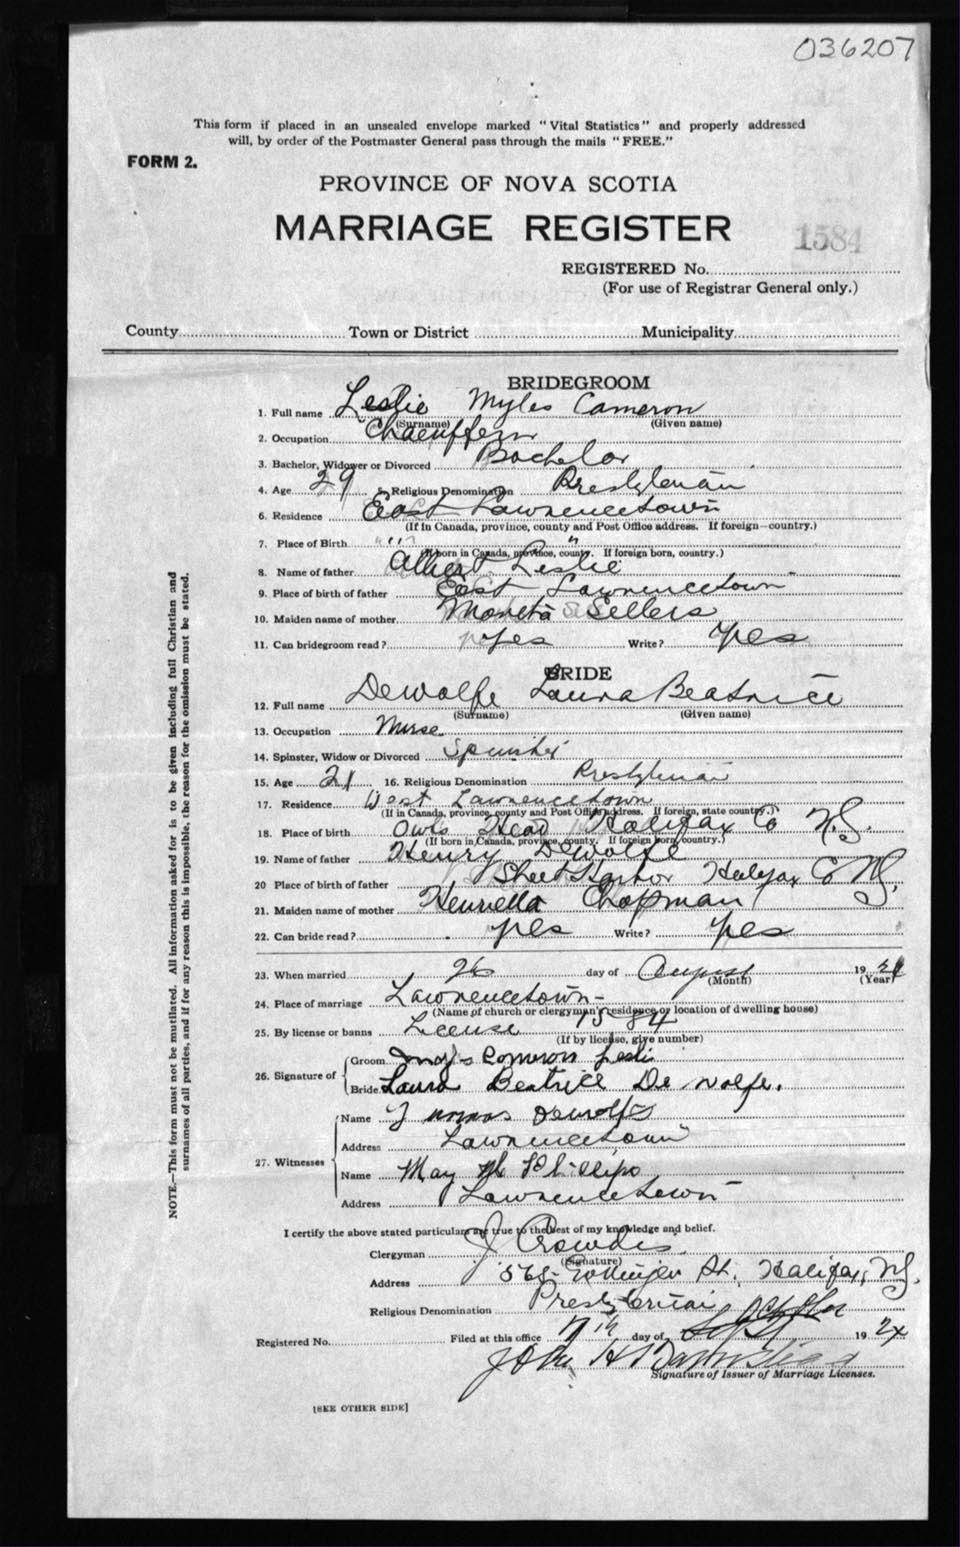 036207
This form if placed in an unsealed envelope marked "Vital Statistics" and properly addressed
will, by order of the Postmaster General pass through the mails "FREE."
FORM 2.
PROVINCE OF NOVA SCOTIA
MARRIAGE REGISTER
1584
REGISTERED No.
(For use of Registrar General only.)
County Town or District Municipality
NOTE.—This form must not be mutilated. All information asked for is to be given including full Christian and
surnames of all parties, and if for any reason this is impossible, the reason for the omission must be stated.
BRIDEGROOM
1. Full name Leslie Myles Cameron
(Surname) (Given name)
2. Occupation
3. Bachelor, Widower or Divorced Bachelor
4. Age 29 5. Religious Denomination Presbyterian
6. Residence East Lawrencetown
(If in Canada, province, county and Post Office address. If foreign—country.)
7. Place of Birth " " "
(If born in Canada, province, county. If foreign born, country.)
8. Name of father Albert Leslie
9. Place of birth of father East Lawrencetown
10. Maiden name of mother Sellers
11. Can bridegroom read? yes Write? yes
BRIDE
12. Full name Dewolfe Laura Beatrice
(Surname) (Given name)
13. Occupation Nurse
14. Spinster, Widow or Divorced Spinster
15. Age 21 16. Religious Denomination Presbyterian
17. Residence West Lawrencetown
(If in Canada, province, county and Post Office address. If foreign, state country.)
18. Place of birth Owls Head Halifax Co N.S.
(If born in Canada, province, county. If foreign born, country.)
19. Name of father Henry Dewolfe
20 Place of birth of father Sheet Harbor Halifax Co N.S.
21. Maiden name of mother Henrietta Chapman
22. Can bride read? yes Write? yes
23. When married 26 day of August 1924
(Month) (Year)
24. Place of marriage Lawrencetown
(Name of church or clergyman's residence or location of dwelling house)
25. By license or banns License 1584
(If by license, give number)
26. Signature of
Groom Cameron Leslie
Bride Laura Beatrice De wolfe.
27. Witnesses
Name Dewolfe
Address Lawrencetown
Name May Phillips
Address Lawrencetown
I certify the above stated particulars are true to the best of my knowledge and belief.
Clergyman J Crowdis
(Signature)
Address St. Halifax, N.S.
Religious Denomination Presbyterian
Registered No. Filed at this office 7th day of October 1924
Signature of Issuer of Marriage Licenses.
[SEE OTHER SIDE]